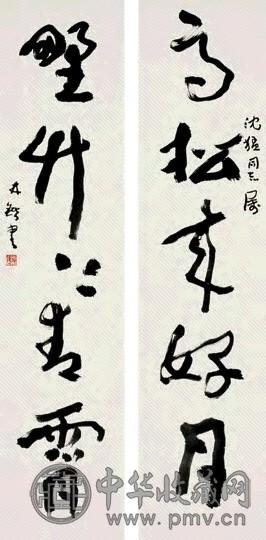 高松来好月
沈猛同志属
野竹上青霄
林锴书
中华收藏网
www.pmv.cn